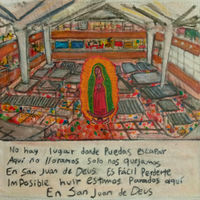 No hay lugar donde Puedas escapar
Aquí no lloramos solo nos quejamos
En San Juan de Deus Es Fácil Perderte
Imposible huir estamos Parados aquí
En San Juan de Deus